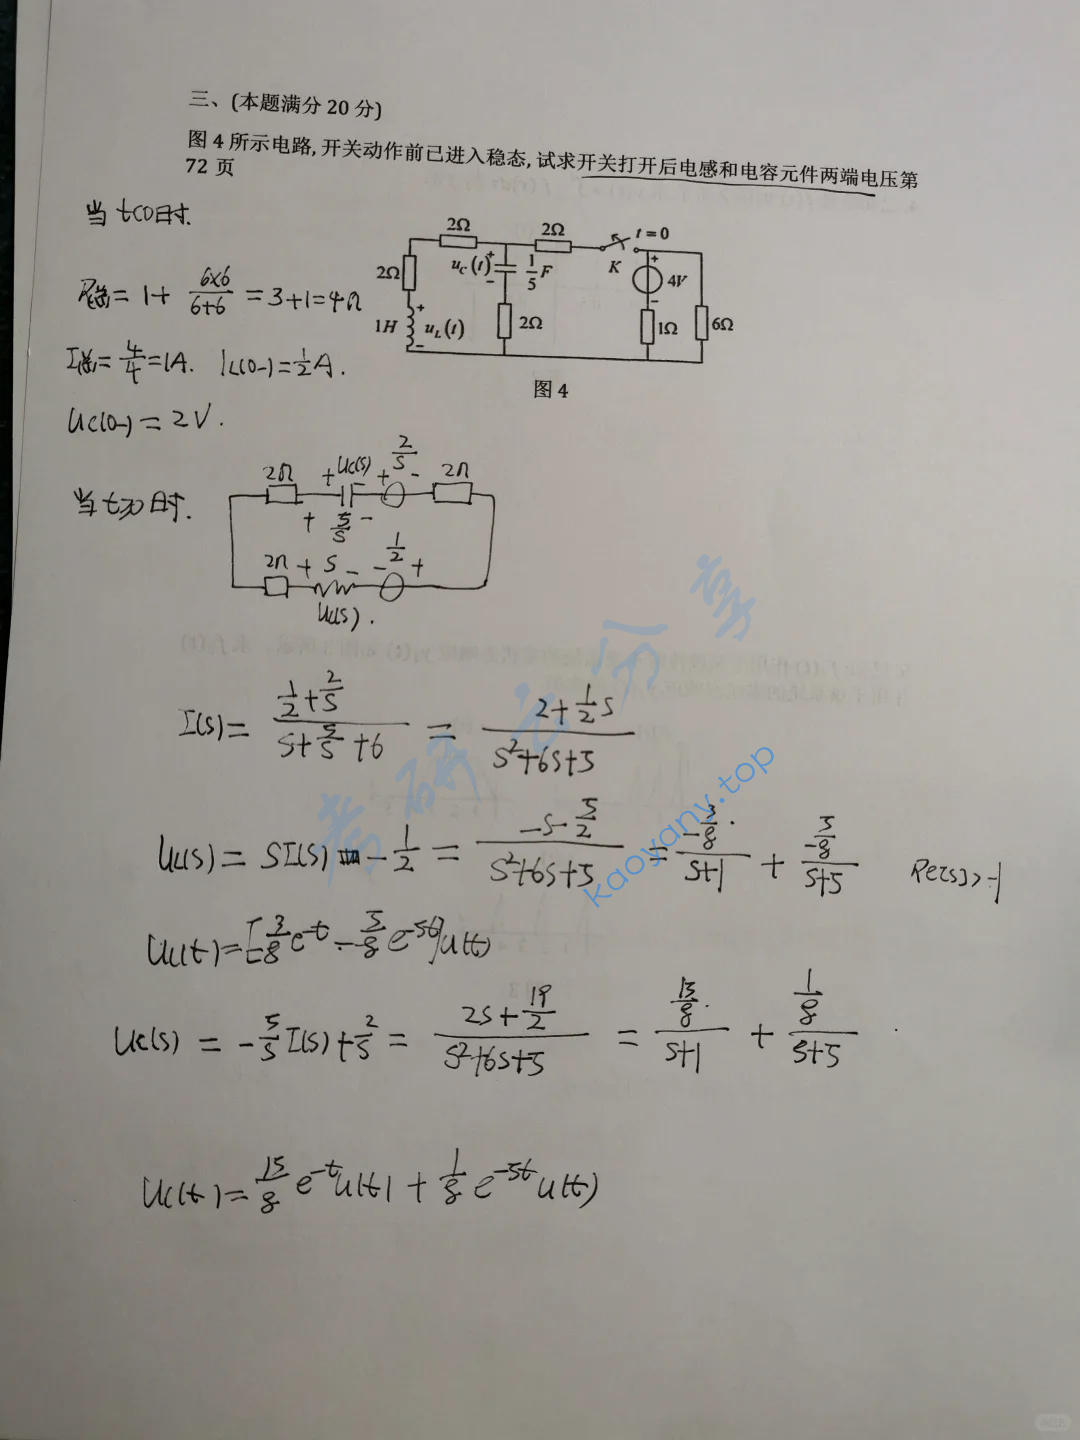 三、(本题满分 20 分)
图 4 所示电路, 开关动作前已进入稳态, 试求开关打开后电感和电容元件两端电压第
72 页
当 t<0 时.
R总 = 1 + 6×6/(6+6) = 3+1 = 4Ω
I总 = 4/4 = 1A. IL(0-) = 1/2 A.
Uc(0-) = 2V.
2Ω 2Ω t=0
2Ω uC(t) + - 1/5 F K + - 4V
1H + uL(t) - 2Ω 1Ω 6Ω
图 4
当 t≥0 时.
2Ω + Uc(s) - + 2/s - 2Ω
+ 5/s -
2Ω + s - - 1/2 +
UL(s).
I(s) = (1/2 + 2/s)/(s + 5/s + 6) = (2 + 1/2 s)/(s²+6s+5)
UL(s) = SI(s) - 1/2 = (-s - 5/2)/(s²+6s+5) = (-3/8)/(s+1) + (-5/8)/(s+5) Re[s]>-1
UL(t) = [-3/8 e^-t - 5/8 e^-5t]u(t)
Uc(s) = -5/s I(s) + 2/s = (2s + 19/2)/(s²+6s+5) = (15/8)/(s+1) + (1/8)/(s+5)
Uc(t) = 15/8 e^-t u(t) + 1/8 e^-5t u(t)
考研云分享
kaoyany.top